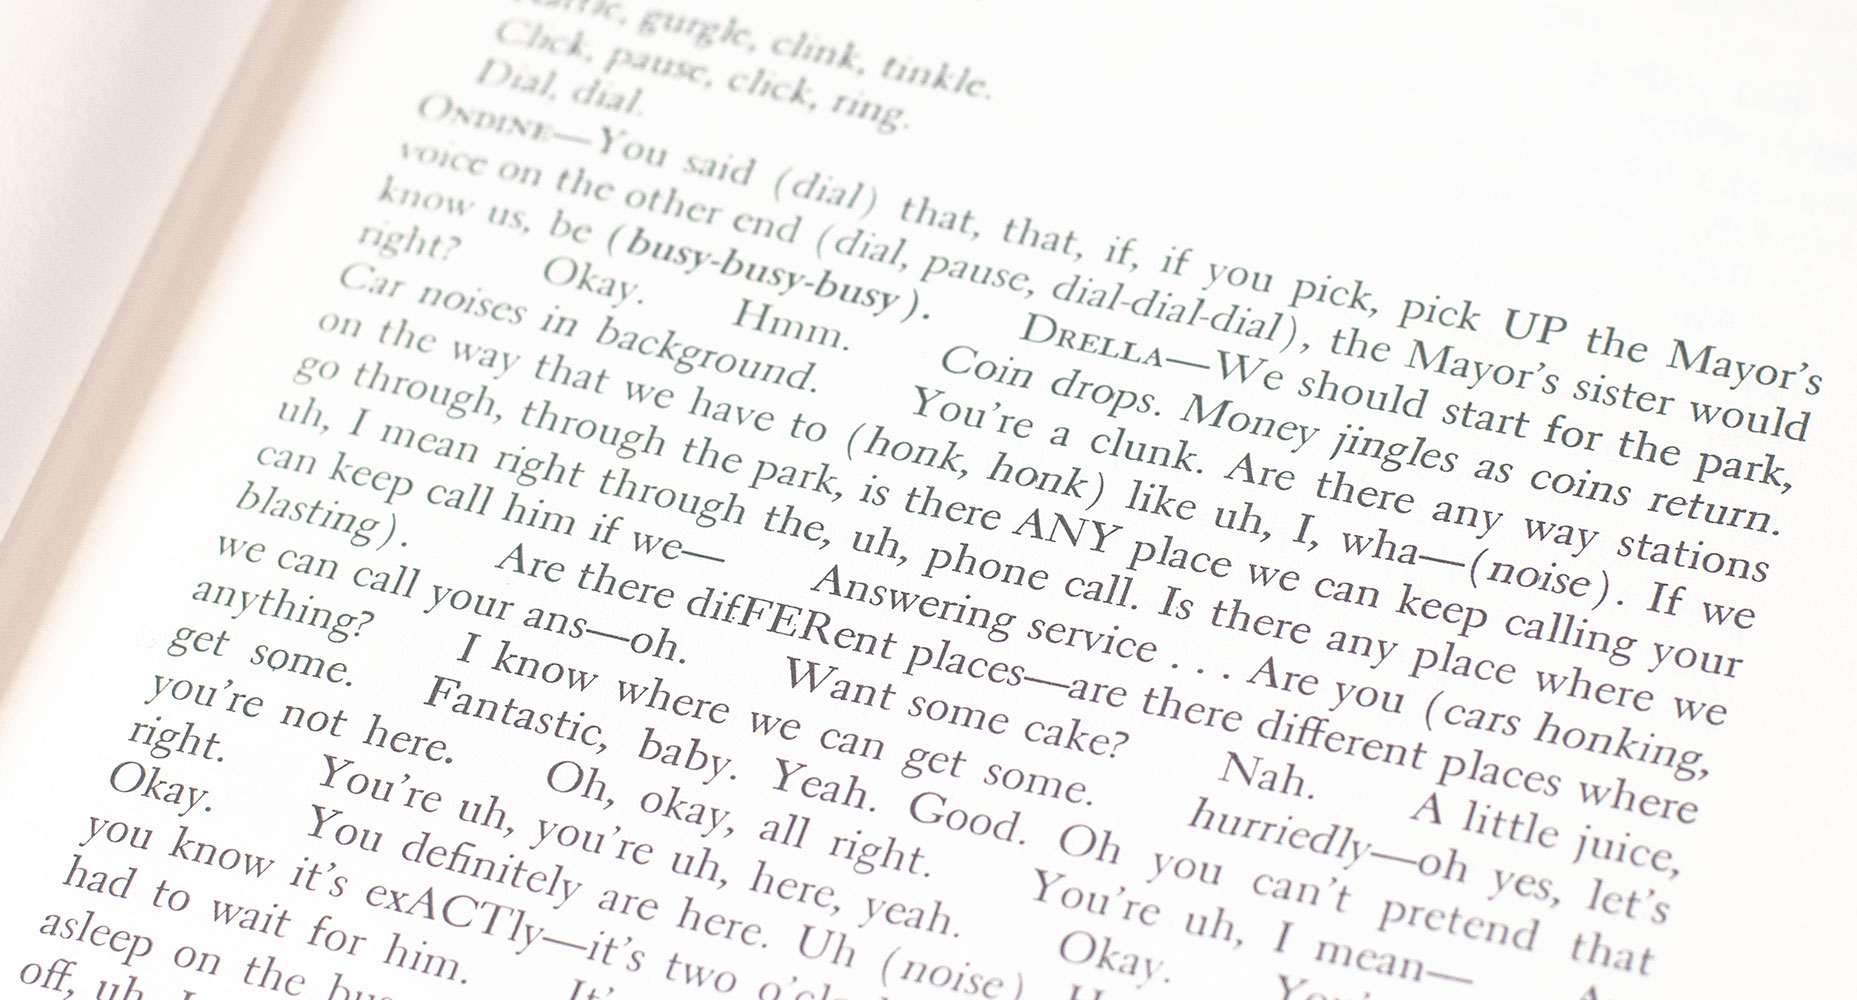 gurgle, clink, tinkle.
Click, pause, click, ring.
Dial, dial.
ONDINE—You said (dial) that, that, if, if you pick, pick UP the Mayor's
voice on the other end (dial, pause, dial-dial-dial), the Mayor's sister would
know us, be (busy-busy-busy). DRELLA—We should start for the park,
right? Okay. Hmm. Coin drops. Money jingles as coins return.
Car noises in background. You're a clunk. Are there any way stations
on the way that we have to (honk, honk) like uh, I, wha—(noise). If we
go through, through the park, is there ANY place we can keep calling your
uh, I mean right through the, uh, phone call. Is there any place where we
can keep call him if we— Answering service . . . Are you (cars honking,
blasting). Are there difFERent places—are there different places where
we can call your ans—oh. Want some cake? Nah. A little juice,
anything? I know where we can get some. hurriedly—oh yes, let's
get some. Fantastic, baby. Yeah. Good. Oh you can't pretend that
you're not here. Oh, okay, all right. You're uh, I mean—
right. You're uh, you're uh, here, yeah. Okay.
Okay. You definitely are here. Uh (noise)
you know it's exACTly—it's two
had to wait for him.
asleep on the
off, uh,